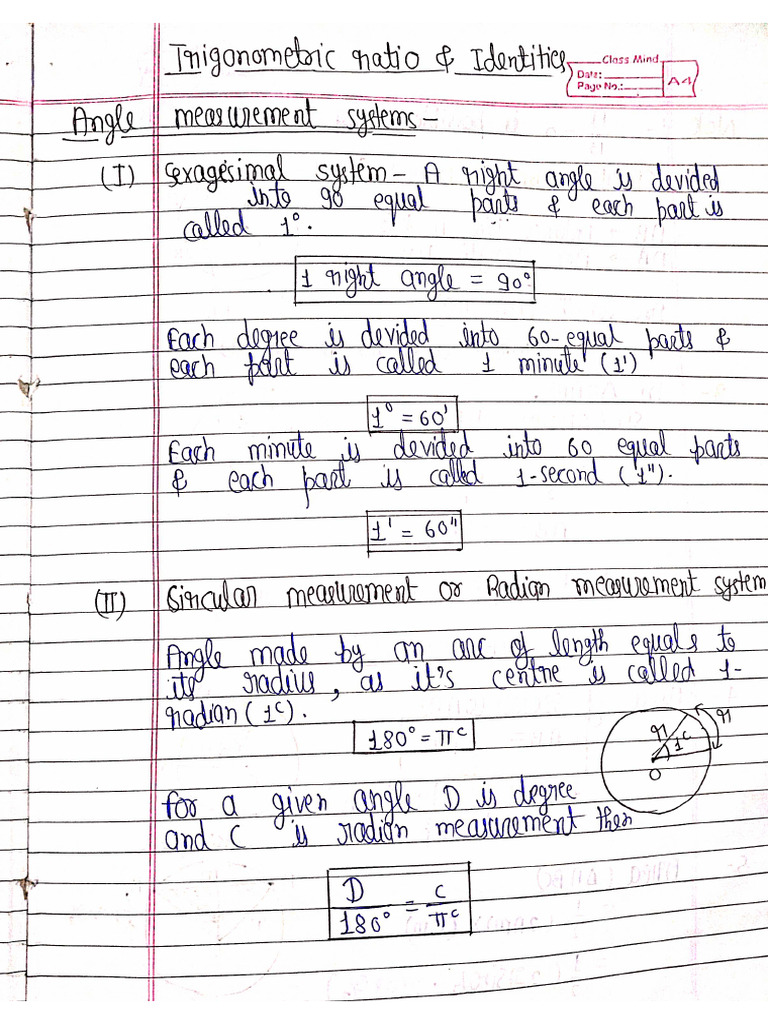 Trigonometric ratio & Identities
Class Mind
Date:
Page No.:
A4
Angle measurement systems-
(I) Sexagesimal system- A right angle is devided
into 90 equal parts & each part is
called 1°.
1 right angle = 90°
Each degree is devided into 60-equal parts &
each part is called 1 minute (1')
1° = 60'
Each minute is devided into 60 equal parts
& each part is called 1-second (1").
1' = 60"
(II) Circular measurement or Radian measurement system
Angle made by an arc of length equals to
its radius, as it's centre is called 1-
radian (1ᶜ).
180° = πᶜ
r
1ᶜ
r
O
for a given angle D is degree
and C is radian measurement then
D/180° = C/πᶜ